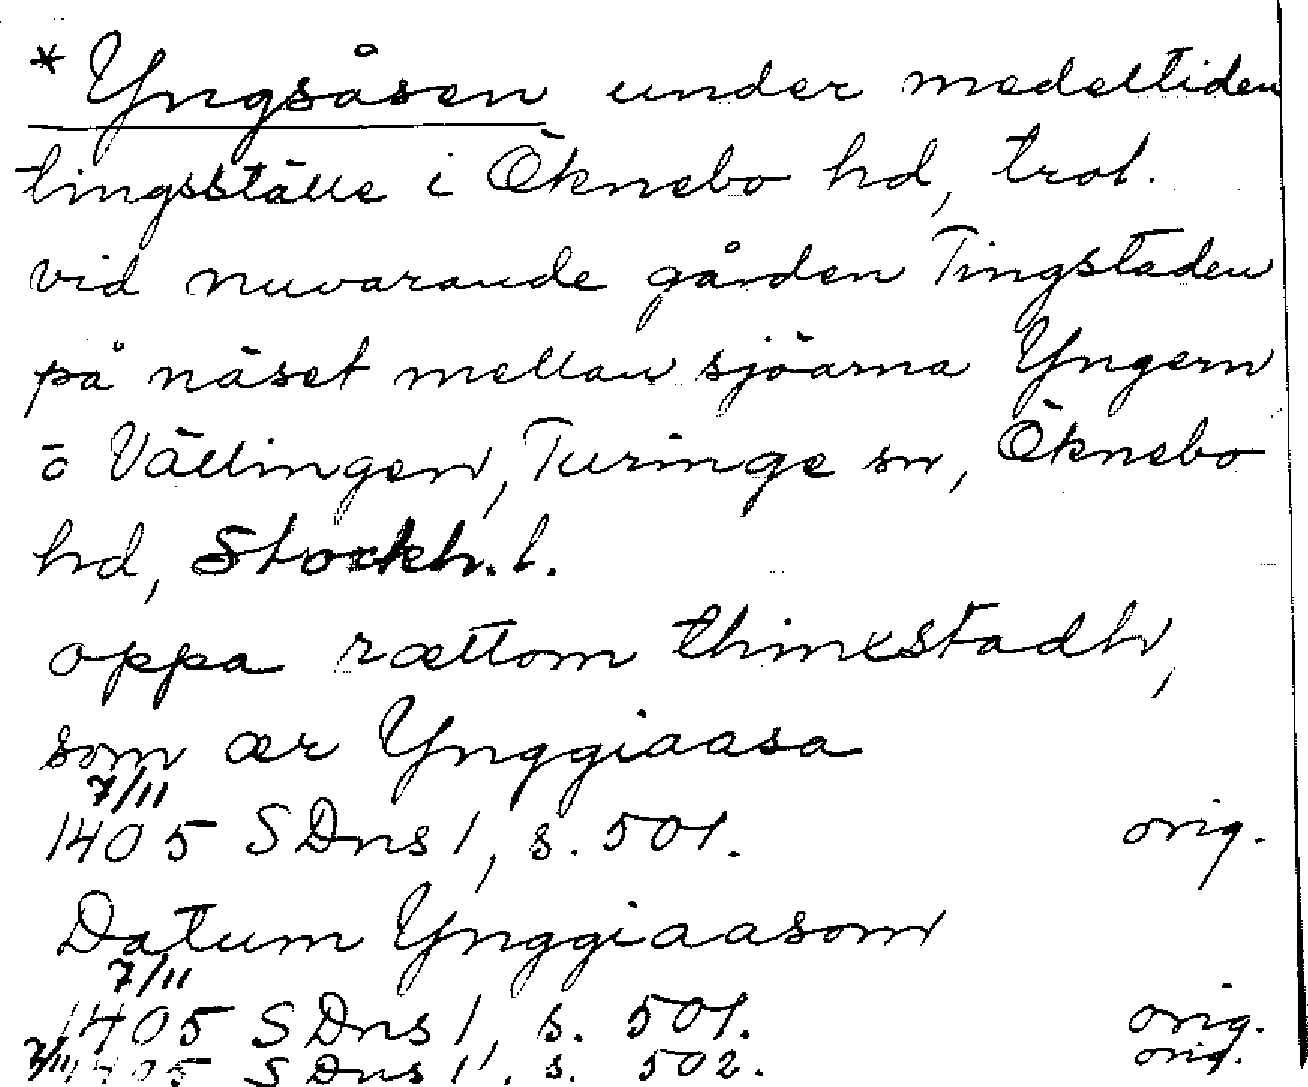 * Yngsåsen under medeltiden
tingsställe i Öknebo hd, trol.
vid nuvarande gården Tingstaden
på näset mellan sjöarna Yngern
o Vällingen, Turinge sn, Öknebo
hd, Stockh. l.
oppa rættom thinxstadh,
som ær Ynggiaasa
7/11
1405 SDns 1, s. 501. orig.
Datum Ynggiaasom
7/11
1405 SDns 1, s. 501. orig.
7/11 1405 SDns 1, s. 502. orig.